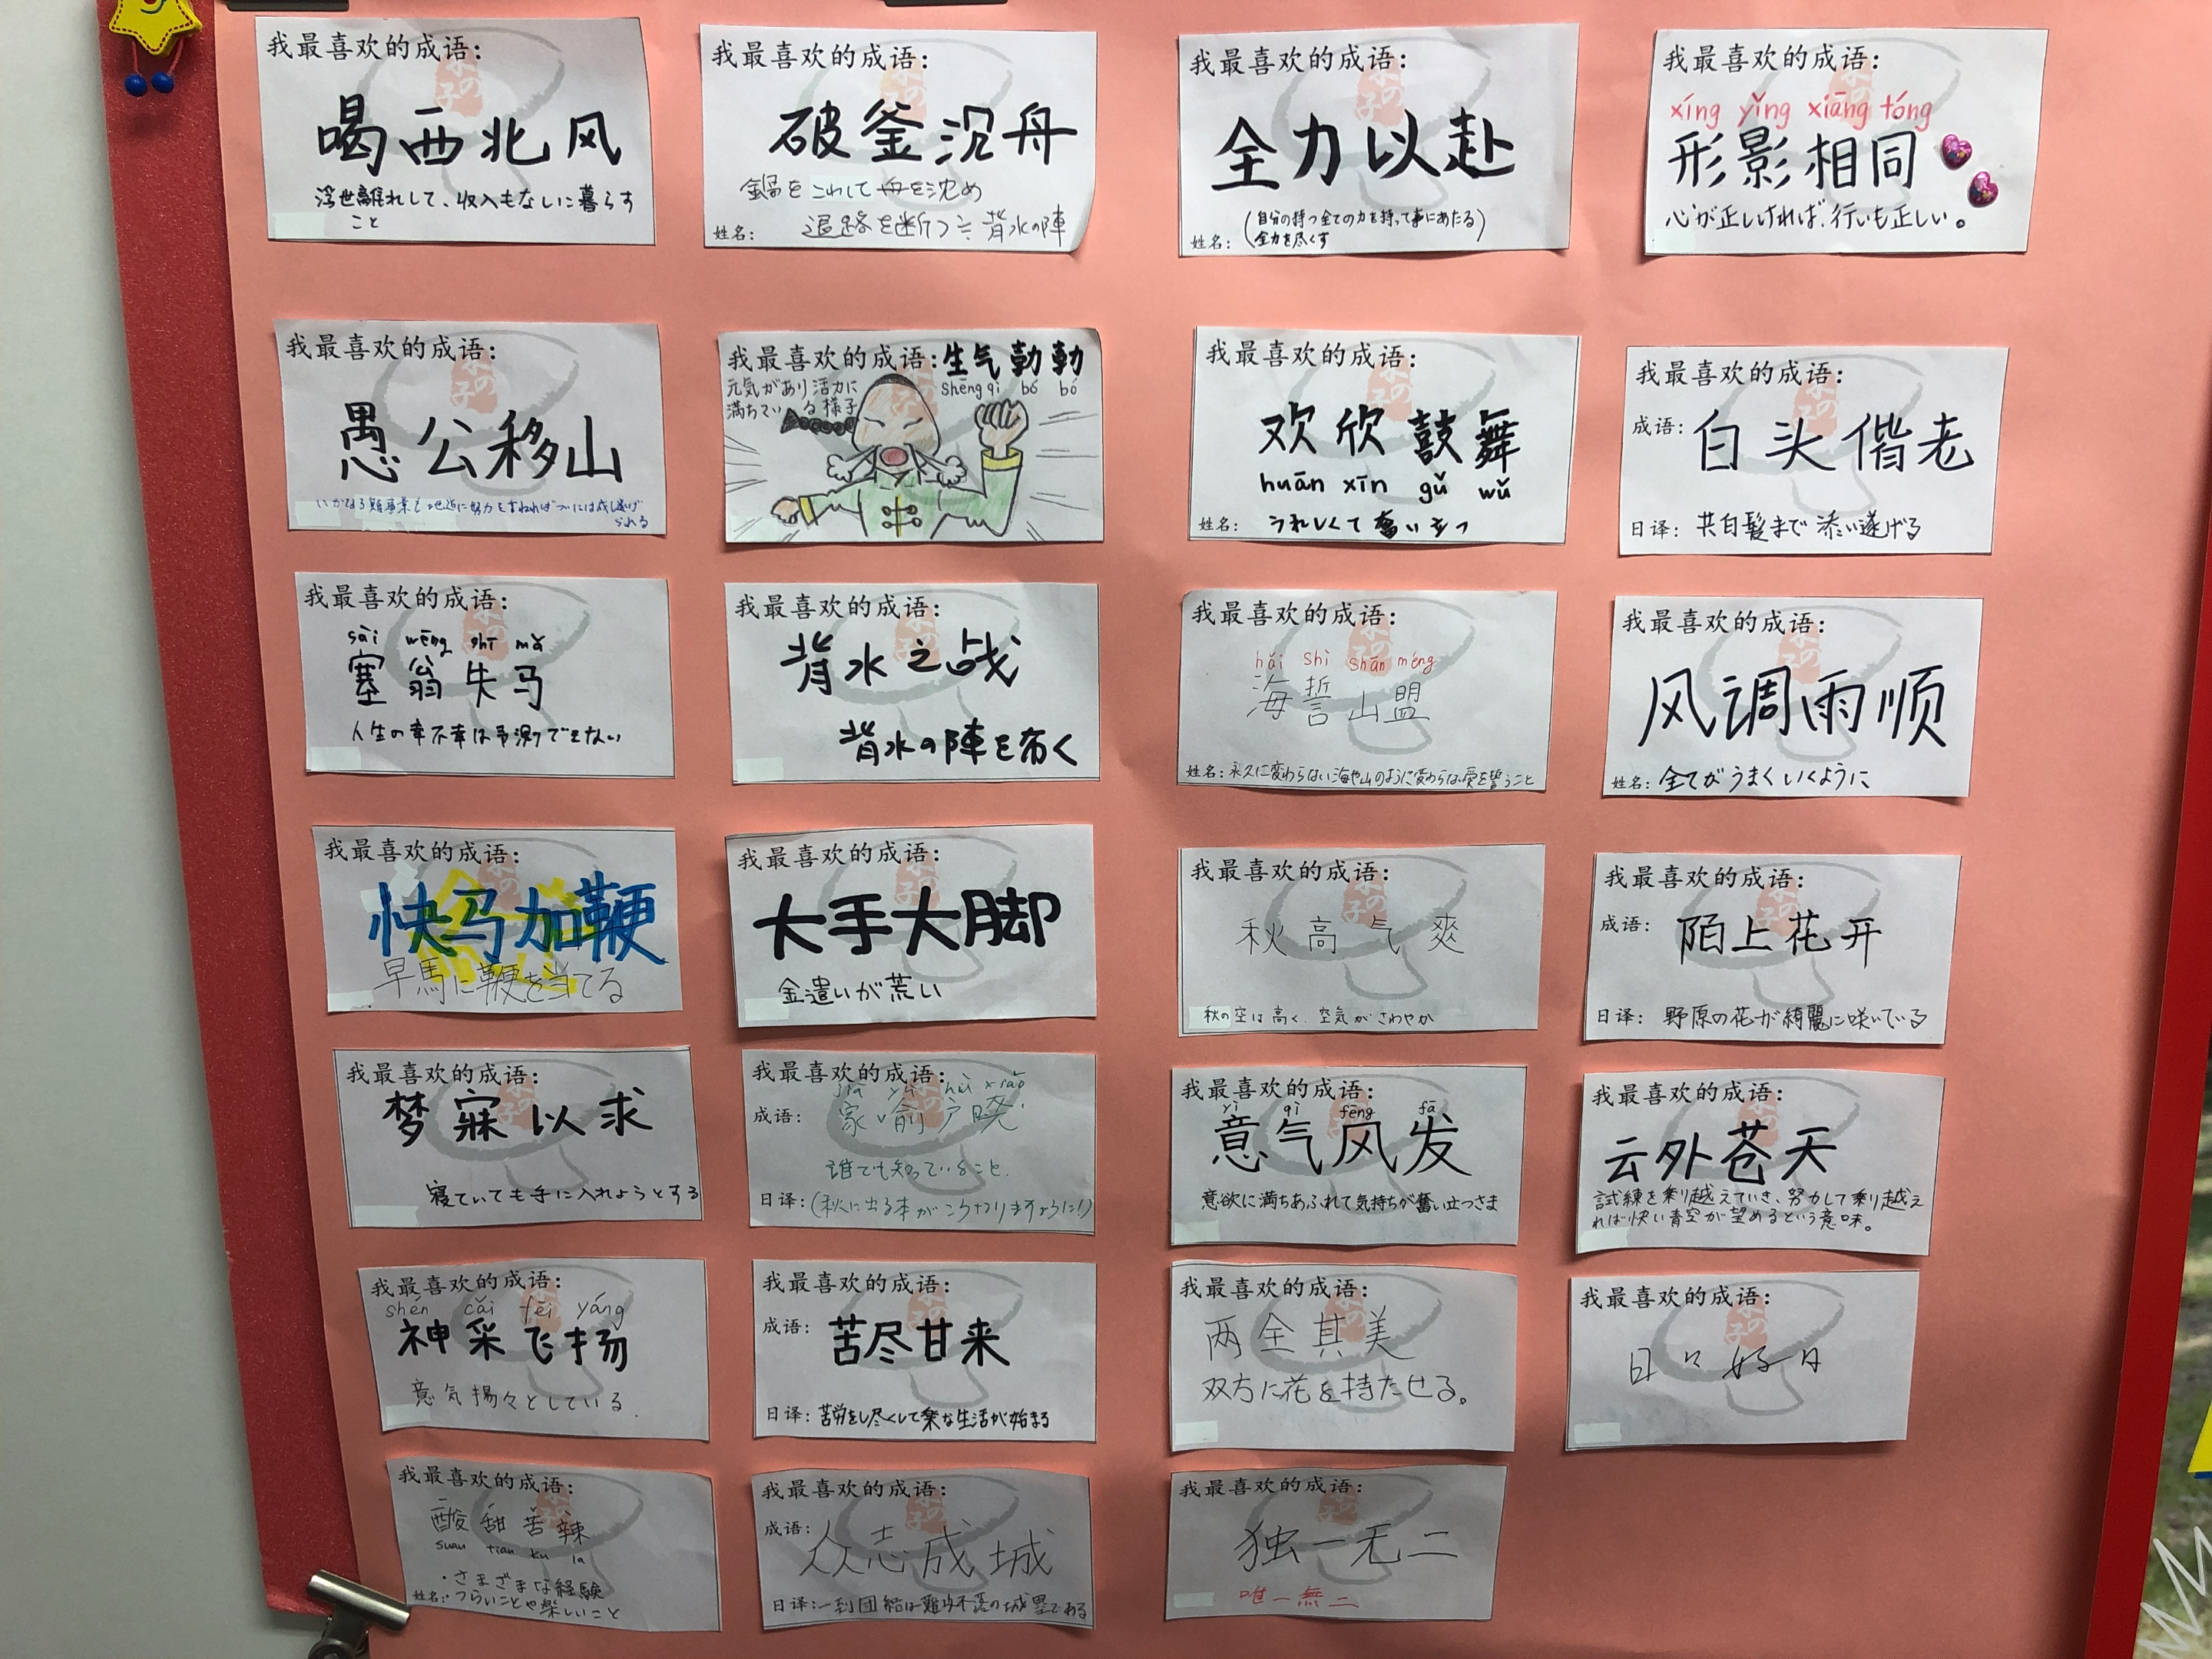 我最喜欢的成语:
喝西北风
浮世離れして、収入もなしに暮らす
こと
我最喜欢的成语:
破釜沉舟
鍋をこわして舟を沈め
姓名: 退路を断つ≒背水の陣
我最喜欢的成语:
全力以赴
(自分の持つ全ての力を持って事にあたる)
姓名: 全力を尽くす
我最喜欢的成语:
xíng yǐng xiāng tóng
形影相同
心が正しければ、行いも正しい。
我最喜欢的成语:
愚公移山
いかなる難事業も地道に努力を重ねればついには成し遂げ
られる
我最喜欢的成语:生气勃勃
shēng qì bó bó
元気があり活力に
満ちている様子
我最喜欢的成语:
欢欣鼓舞
huān xīn gǔ wǔ
姓名: うれしくて奮い立つ
我最喜欢的成语:
成语: 白头偕老
日译: 共白髪まで添い遂げる
我最喜欢的成语:
sài wēng shī mǎ
塞翁失马
人生の幸不幸は予測できない
我最喜欢的成语:
背水之战
背水の陣を布く
我最喜欢的成语:
hǎi shì shān méng
海誓山盟
姓名: 永久に変わらない海や山のように変わらぬ愛を誓うこと
我最喜欢的成语:
风调雨顺
姓名: 全てがうまくいくように
我最喜欢的成语:
快马加鞭
早馬に鞭を当てる
我最喜欢的成语:
大手大脚
金遣いが荒い
我最喜欢的成语:
秋高气爽
秋の空は高く、空気がさわやか
我最喜欢的成语:
成语: 陌上花开
日译: 野原の花が綺麗に咲いている
我最喜欢的成语:
梦寐以求
寝ていても手に入れようとする
我最喜欢的成语:
jiā yù hù xiǎo
成语: 家喻户晓
誰でも知っていること。
日译: (秋に出る本がこうなりますように!)
我最喜欢的成语:
yì qì fēng fā
意气风发
意欲に満ちあふれて気持ちが奮い立つさま
我最喜欢的成语:
云外苍天
試練を乗り越えていき、努力して乗り越え
れば快い青空が望めるという意味。
我最喜欢的成语:
shén cǎi fēi yáng
神采飞扬
意気揚々としている。
我最喜欢的成语:
成语: 苦尽甘来
日译: 苦労をし尽くして楽な生活が始まる
我最喜欢的成语:
两全其美
双方に花を持たせる。
我最喜欢的成语:
日々好日
我最喜欢的成语:
酸甜苦辣
suan tian ku la
・さまざまな経験
姓名: ・つらいことや楽しいこと
我最喜欢的成语:
成语: 众志成城
日译: 一致団結は難攻不落の城塁である
我最喜欢的成语:
独一无二
唯一無二